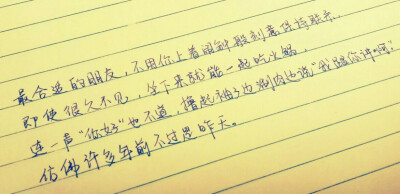 最合适的朋友，不用你上着闹钟般刻意保持联系，
即使很久不见，坐下来就能一起吃火锅，
连一声“你好”也不道，撸起袖子边涮肉边说“我跟你讲啊”。
仿佛许多年前不过是昨天。